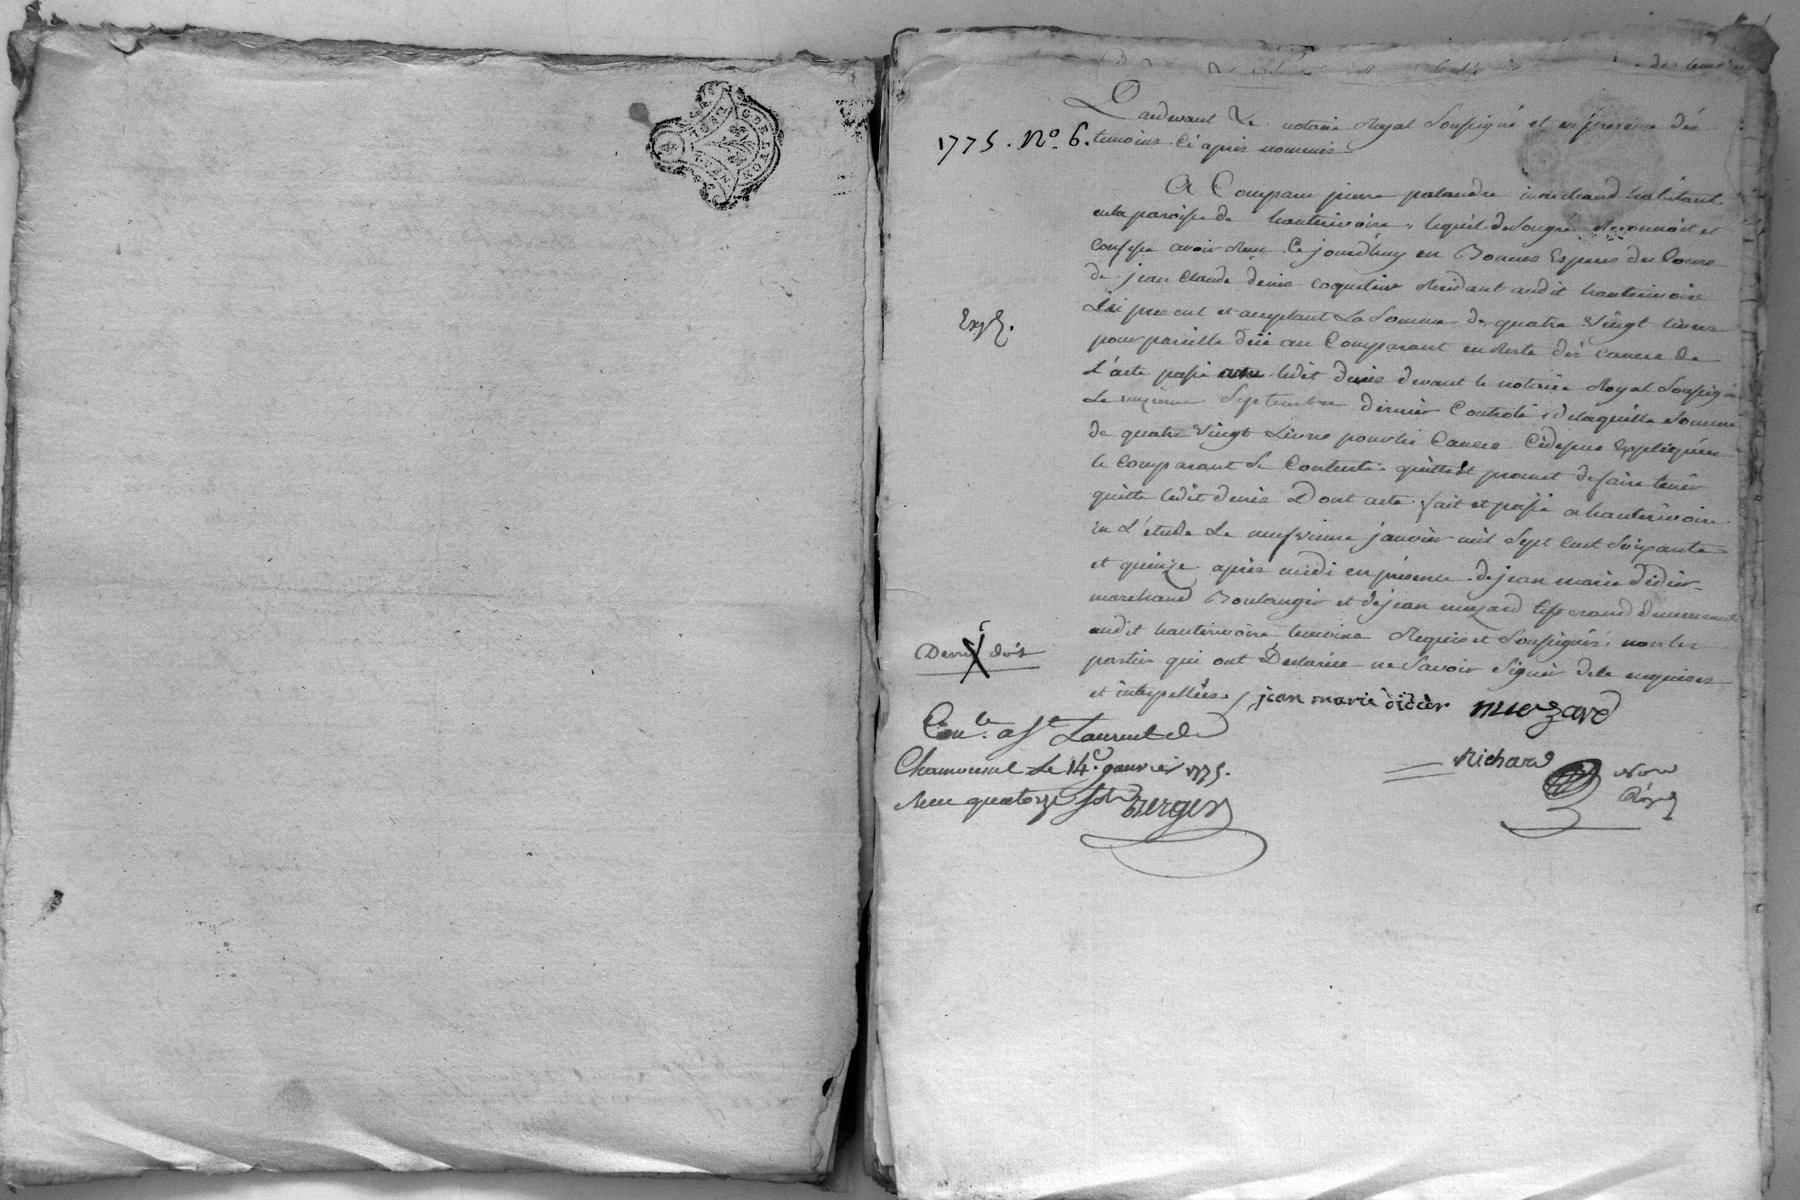 Pardevant Le notaire Royal Soussigné et en presence des
1775. No. 6. temoins Ci apres nommés
A Comparu pierre palandre marchand habitant
en la paroisse de hauterivoire, lequel de son gré Reconnoit et
confesse avoir Reçu Ce jourdhuy en Bonnes Especes du Cours
de jean Claude denis coquetier Residant audit hauterivoire
ici present et acceptant La Somme de quatre Vingt livres
Expé.
pour pareille düe au Comparant en Reste des causes de
L'acte passé avec ledit denis devant le notaire Royal Soussigné
Le onzieme Septembre dernier Controlé, de laquelle Somme
de quatre Vingt Livres pour les Causes Cidessus Expliquées
le Comparant Se Contente quitte et promet de faire tenir
quitte ledit denis Dont acte fait et passé a hauterivoire
en L'étude Le neufvieme janvier mil Sept Cent Soixante
et quinze après midi en présence de jean marie didier
marchand Boulanger et de jean muzard tisserand demeurant
audit hauterivoire temoins Requis et Soussignés non les
Denis doit
parties qui ont Declarées ne Savoir Signer de ce enquises
et interpellées. jean marie didier muzard
Con.le a St Laurent de
Chamousset le 14e. janvier 1775.
Reçu quatorze sols Berger
Richard Nore
Royal